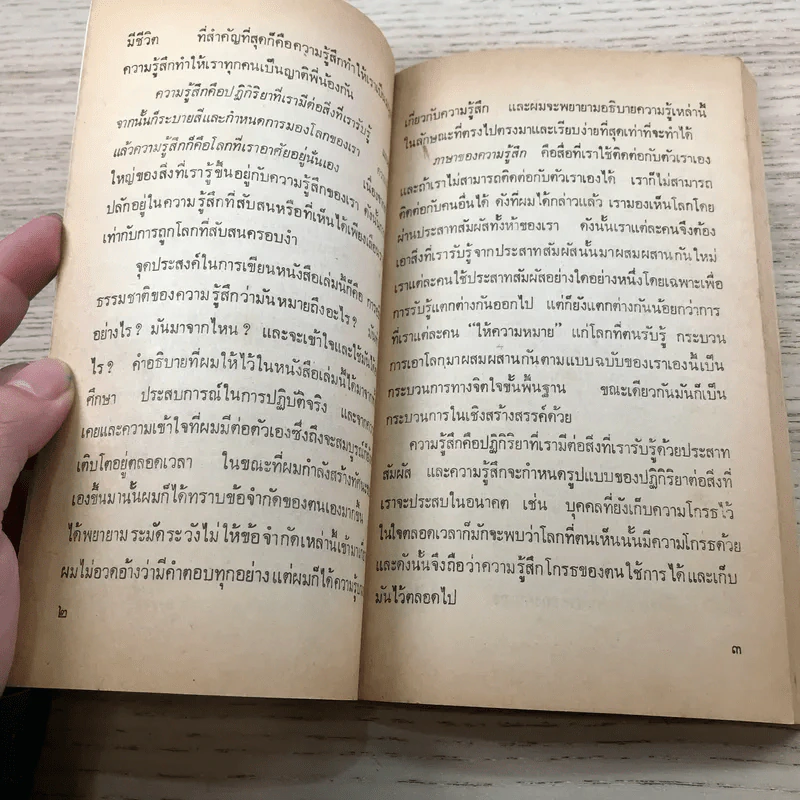 มีชีวิต ที่สำคัญที่สุดก็คือความรู้สึกทำให้เรา
ความรู้สึกทำให้เราทุกคนเป็นญาติพี่น้องกัน
ความรู้สึกคือปฏิกิริยาที่เรามีต่อสิ่งที่เรารับรู้
จากนั้นก็ระบายสีและกำหนดการมองโลกของเรา
แล้วความรู้สึกก็คือโลกที่เราอาศัยอยู่นั่นเอง
ใหญ่ของสิ่งที่เรารู้ขึ้นอยู่กับความรู้สึกของเรา
ปลักอยู่ในความรู้สึกที่สับสนหรือที่เห็นได้เพียง
เท่ากับการถูกโลกที่สับสนครอบงำ
จุดประสงค์ในการเขียนหนังสือเล่มนี้ก็คือ
ธรรมชาติของความรู้สึกว่ามันหมายถึงอะไร?
อย่างไร? มันมาจากไหน? และจะเข้าใจและใช้มัน
ไร? คำอธิบายที่ผมให้ไว้ในหนังสือเล่มนี้ได้มาจาก
ศึกษา ประสบการณ์ในการปฏิบัติจริง และจาก
เคยและความเข้าใจที่ผมมีต่อตัวเองซึ่งถึงจะสมบูรณ์
เติบโตอยู่ตลอดเวลา ในขณะที่ผมกำลังสร้าง
เองขึ้นมานั้นผมก็ได้ทราบข้อจำกัดของตนเองมากขึ้น
ได้พยายามระมัดระวังไม่ให้ข้อจำกัดเหล่านี้เข้ามา
ผมไม่อวดอ้างว่ามีคำตอบทุกอย่าง แต่ผมก็ได้ความรู้
๒
เกี่ยวกับความรู้สึก และผมจะพยายามอธิบายความรู้เหล่านี้
ในลักษณะที่ตรงไปตรงมาและเรียบง่ายที่สุดเท่าที่จะทำได้
ภาษาของความรู้สึก คือสื่อที่เราใช้ติดต่อกับตัวเราเอง
และถ้าเราไม่สามารถติดต่อกับตัวเราเองได้ เราก็ไม่สามารถ
ติดต่อกับคนอื่นได้ ดังที่ผมได้กล่าวแล้ว เรามองเห็นโลกโดย
ผ่านประสาทสัมผัสทั้งห้าของเรา ดังนั้นเราแต่ละคนจึงต้อง
เอาสิ่งที่เรารับรู้จากประสาทสัมผัสนั้นมาผสมผสานกันใหม่
เราแต่ละคนใช้ประสาทสัมผัสอย่างใดอย่างหนึ่งโดยเฉพาะเพื่อ
การรับรู้แตกต่างกันออกไป แต่ก็ยังแตกต่างกันน้อยกว่าการ
ที่เราแต่ละคน "ให้ความหมาย" แก่โลกที่ตนรับรู้ กระบวน
การเอาโลกมาผสมผสานกันตามแบบฉบับของเราเองนี้เป็น
กระบวนการทางจิตใจขั้นพื้นฐาน ขณะเดียวกันมันก็เป็น
กระบวนการในเชิงสร้างสรรค์ด้วย
ความรู้สึกคือปฏิกิริยาที่เรามีต่อสิ่งที่เรารับรู้ด้วยประสาท
สัมผัส และความรู้สึกจะกำหนดรูปแบบของปฏิกิริยาต่อสิ่งที่
เราจะประสบในอนาคต เช่น บุคคลที่ยังเก็บความโกรธไว้
ในใจตลอดเวลาก็มักจะพบว่าโลกที่ตนเห็นนั้นมีความโกรธด้วย
และดังนั้นจึงถือว่าความรู้สึกโกรธของตนใช้การได้และเก็บ
มันไว้ตลอดไป
๓